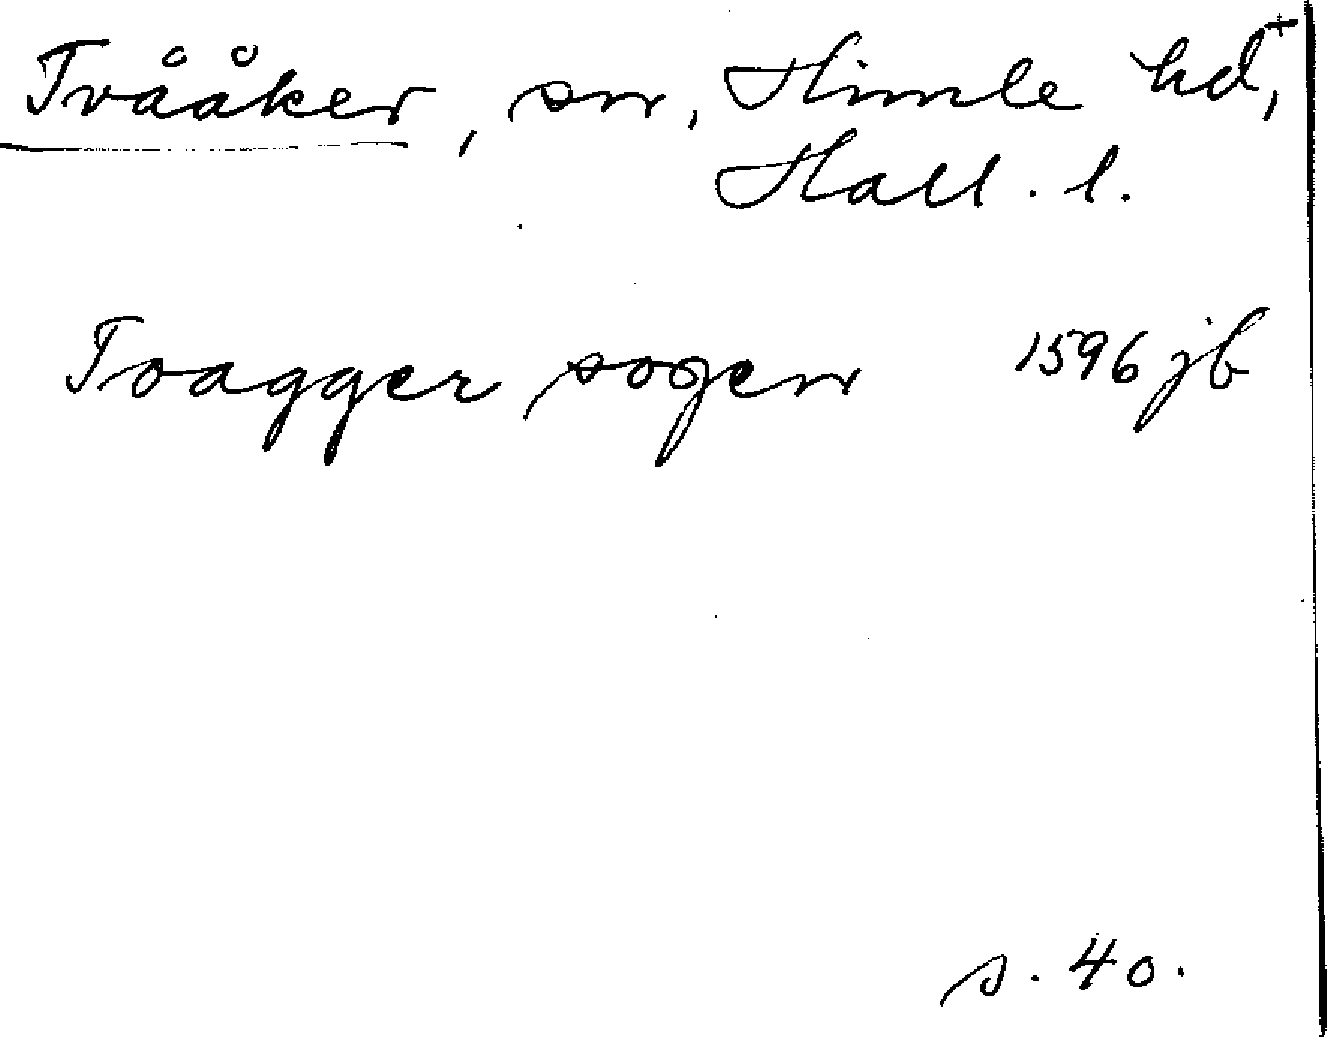 Tvååker, sn, Himle hd,
Hall. l.
Tvagger sogen 1596 jb
s. 40.